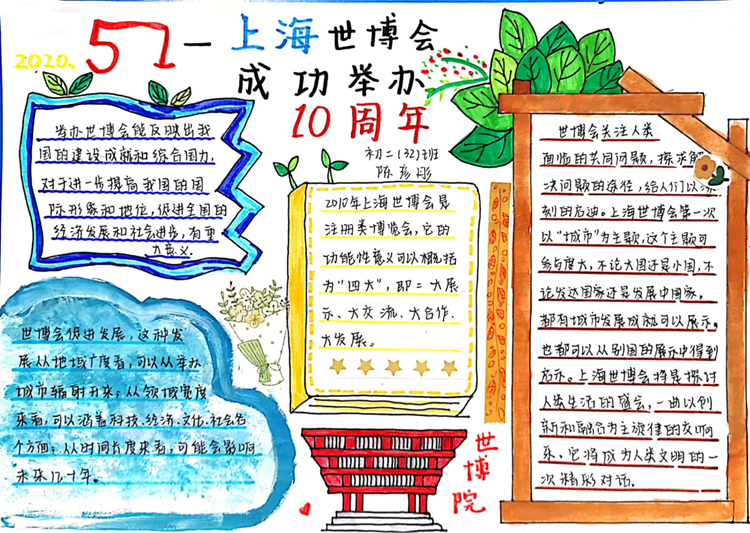 2020、5.1一上海世博会
成功举办
10周年
初二(32)班
举办世博会能反映出我
国的建设成就和综合国力,
对于进一步提高我国的国
际形象和地位,促进全国的
经济发展和社会进步,有重
大意义
2010年上海世博会是
注册类博览会,它的
功能性意义可以概括
为“四大”,即:大展
示、大交流、大合作、
大发展。
世博会关注人类
面临的共同问题,探求解
决问题的途径,给人们以深
刻的启迪。上海世博会第一次
以“城市”为主题,这个主题可
参与度大,不论大国还是小国,不
论发达国家还是发展中国家,
都有城市发展成就可以展示。
也都可以从别国的展示中得到
启示。上海世博会将是探讨
人类生活的盛会,一曲以创
新和融合为主旋律的交响
乐,它将成为人类文明的一
次精彩对话。
世博会促进发展,这种发
展从地域广度看,可以从举办
城市辐射开来;从领域宽度
来看,可以涵盖科技、经济、文化、社会各
个方面;从时间长度来看,可能会影响
未来几十年。
世博院